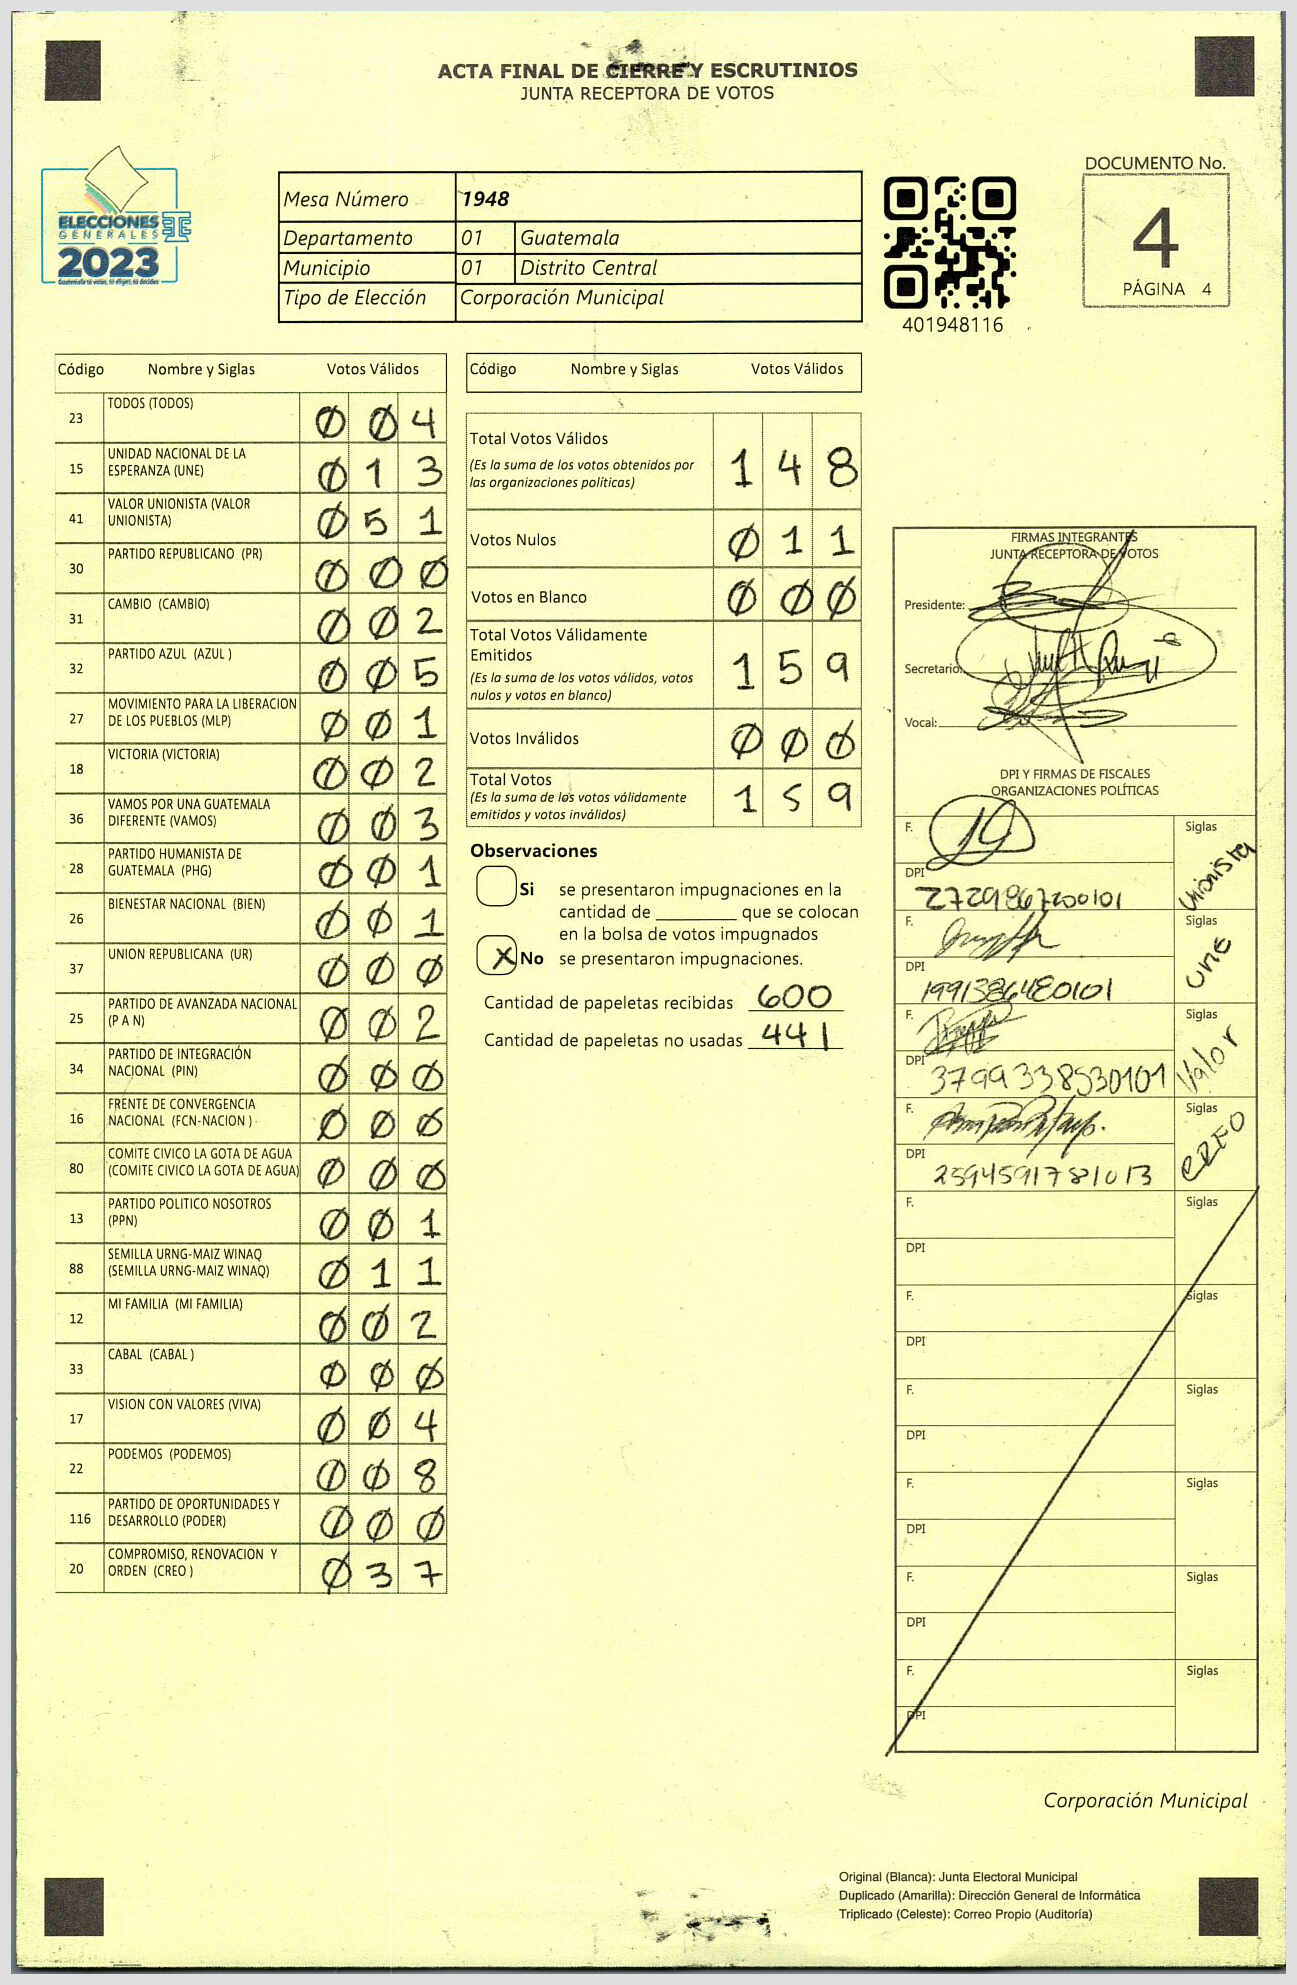 ACTA FINAL DE CIERRE Y ESCRUTINIOS
JUNTA RECEPTORA DE VOTOS
ELECCIONES
GENERALES
2023
Guatemala te valora, tú eliges, tú decides
DOCUMENTO No.
4
PÁGINA 4
Mesa Número 1948
Departamento 01 Guatemala
Municipio 01 Distrito Central
Tipo de Elección Corporación Municipal
401948116
Código Nombre y Siglas Votos Válidos
23 TODOS (TODOS) 0 0 4
15 UNIDAD NACIONAL DE LA
ESPERANZA (UNE) 0 1 3
41 VALOR UNIONISTA (VALOR
UNIONISTA) 0 5 1
30 PARTIDO REPUBLICANO (PR) 0 0 0
31 CAMBIO (CAMBIO) 0 0 2
32 PARTIDO AZUL (AZUL ) 0 0 5
27 MOVIMIENTO PARA LA LIBERACION
DE LOS PUEBLOS (MLP) 0 0 1
18 VICTORIA (VICTORIA) 0 0 2
36 VAMOS POR UNA GUATEMALA
DIFERENTE (VAMOS) 0 0 3
28 PARTIDO HUMANISTA DE
GUATEMALA (PHG) 0 0 1
26 BIENESTAR NACIONAL (BIEN) 0 0 1
37 UNION REPUBLICANA (UR) 0 0 0
25 PARTIDO DE AVANZADA NACIONAL
(P A N) 0 0 2
34 PARTIDO DE INTEGRACIÓN
NACIONAL (PIN) 0 0 0
16 FRENTE DE CONVERGENCIA
NACIONAL (FCN-NACION ) 0 0 0
80 COMITE CIVICO LA GOTA DE AGUA
(COMITE CIVICO LA GOTA DE AGUA) 0 0 0
13 PARTIDO POLITICO NOSOTROS
(PPN) 0 0 1
88 SEMILLA URNG-MAIZ WINAQ
(SEMILLA URNG-MAIZ WINAQ) 0 1 1
12 MI FAMILIA (MI FAMILIA) 0 0 2
33 CABAL (CABAL ) 0 0 0
17 VISION CON VALORES (VIVA) 0 0 4
22 PODEMOS (PODEMOS) 0 0 8
116 PARTIDO DE OPORTUNIDADES Y
DESARROLLO (PODER) 0 0 0
20 COMPROMISO, RENOVACION Y
ORDEN (CREO ) 0 3 7
Código Nombre y Siglas Votos Válidos
Total Votos Válidos
(Es la suma de los votos obtenidos por
las organizaciones políticas) 1 4 8
Votos Nulos 0 1 1
Votos en Blanco 0 0 0
Total Votos Válidamente
Emitidos
(Es la suma de los votos válidos, votos
nulos y votos en blanco) 1 5 9
Votos Inválidos 0 0 0
Total Votos
(Es la suma de los votos válidamente
emitidos y votos inválidos) 1 5 9
Observaciones
Si se presentaron impugnaciones en la
cantidad de ________ que se colocan
en la bolsa de votos impugnados
X No se presentaron impugnaciones.
Cantidad de papeletas recibidas 600
Cantidad de papeletas no usadas 441
FIRMAS INTEGRANTES
JUNTA RECEPTORA DE VOTOS
Presidente:
Secretario:
Vocal:
DPI Y FIRMAS DE FISCALES
ORGANIZACIONES POLÍTICAS
F. Siglas Unionista
DPI 2729867200101
F. Siglas UNE
DPI 1991386480101
F. Siglas Valor
DPI 3799338530101
F. Siglas CREO
DPI
F. Siglas
DPI
F. Siglas
DPI
F. Siglas
DPI
F. Siglas
DPI
F. Siglas
DPI
F. Siglas
DPI
Corporación Municipal
Original (Blanca): Junta Electoral Municipal
Duplicado (Amarilla): Dirección General de Informática
Triplicado (Celeste): Correo Propio (Auditoría)